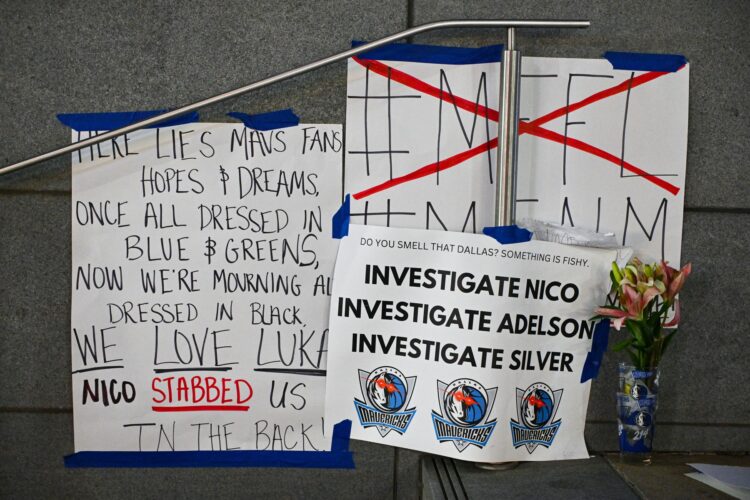 HERE LIES MAVS FANS
HOPES & DREAMS,
ONCE ALL DRESSED IN
BLUE & GREENS,
NOW WE'RE MOURNING
DRESSED IN BLACK.
WE LOVE LUKA
NICO STABBED US
IN THE BACK!
#MFFL
DO YOU SMELL THAT DALLAS? SOMETHING IS FISHY.
INVESTIGATE NICO
INVESTIGATE ADELSON
INVESTIGATE SILVER
MAVERICKS
MAVERICKS
MAVERICKS